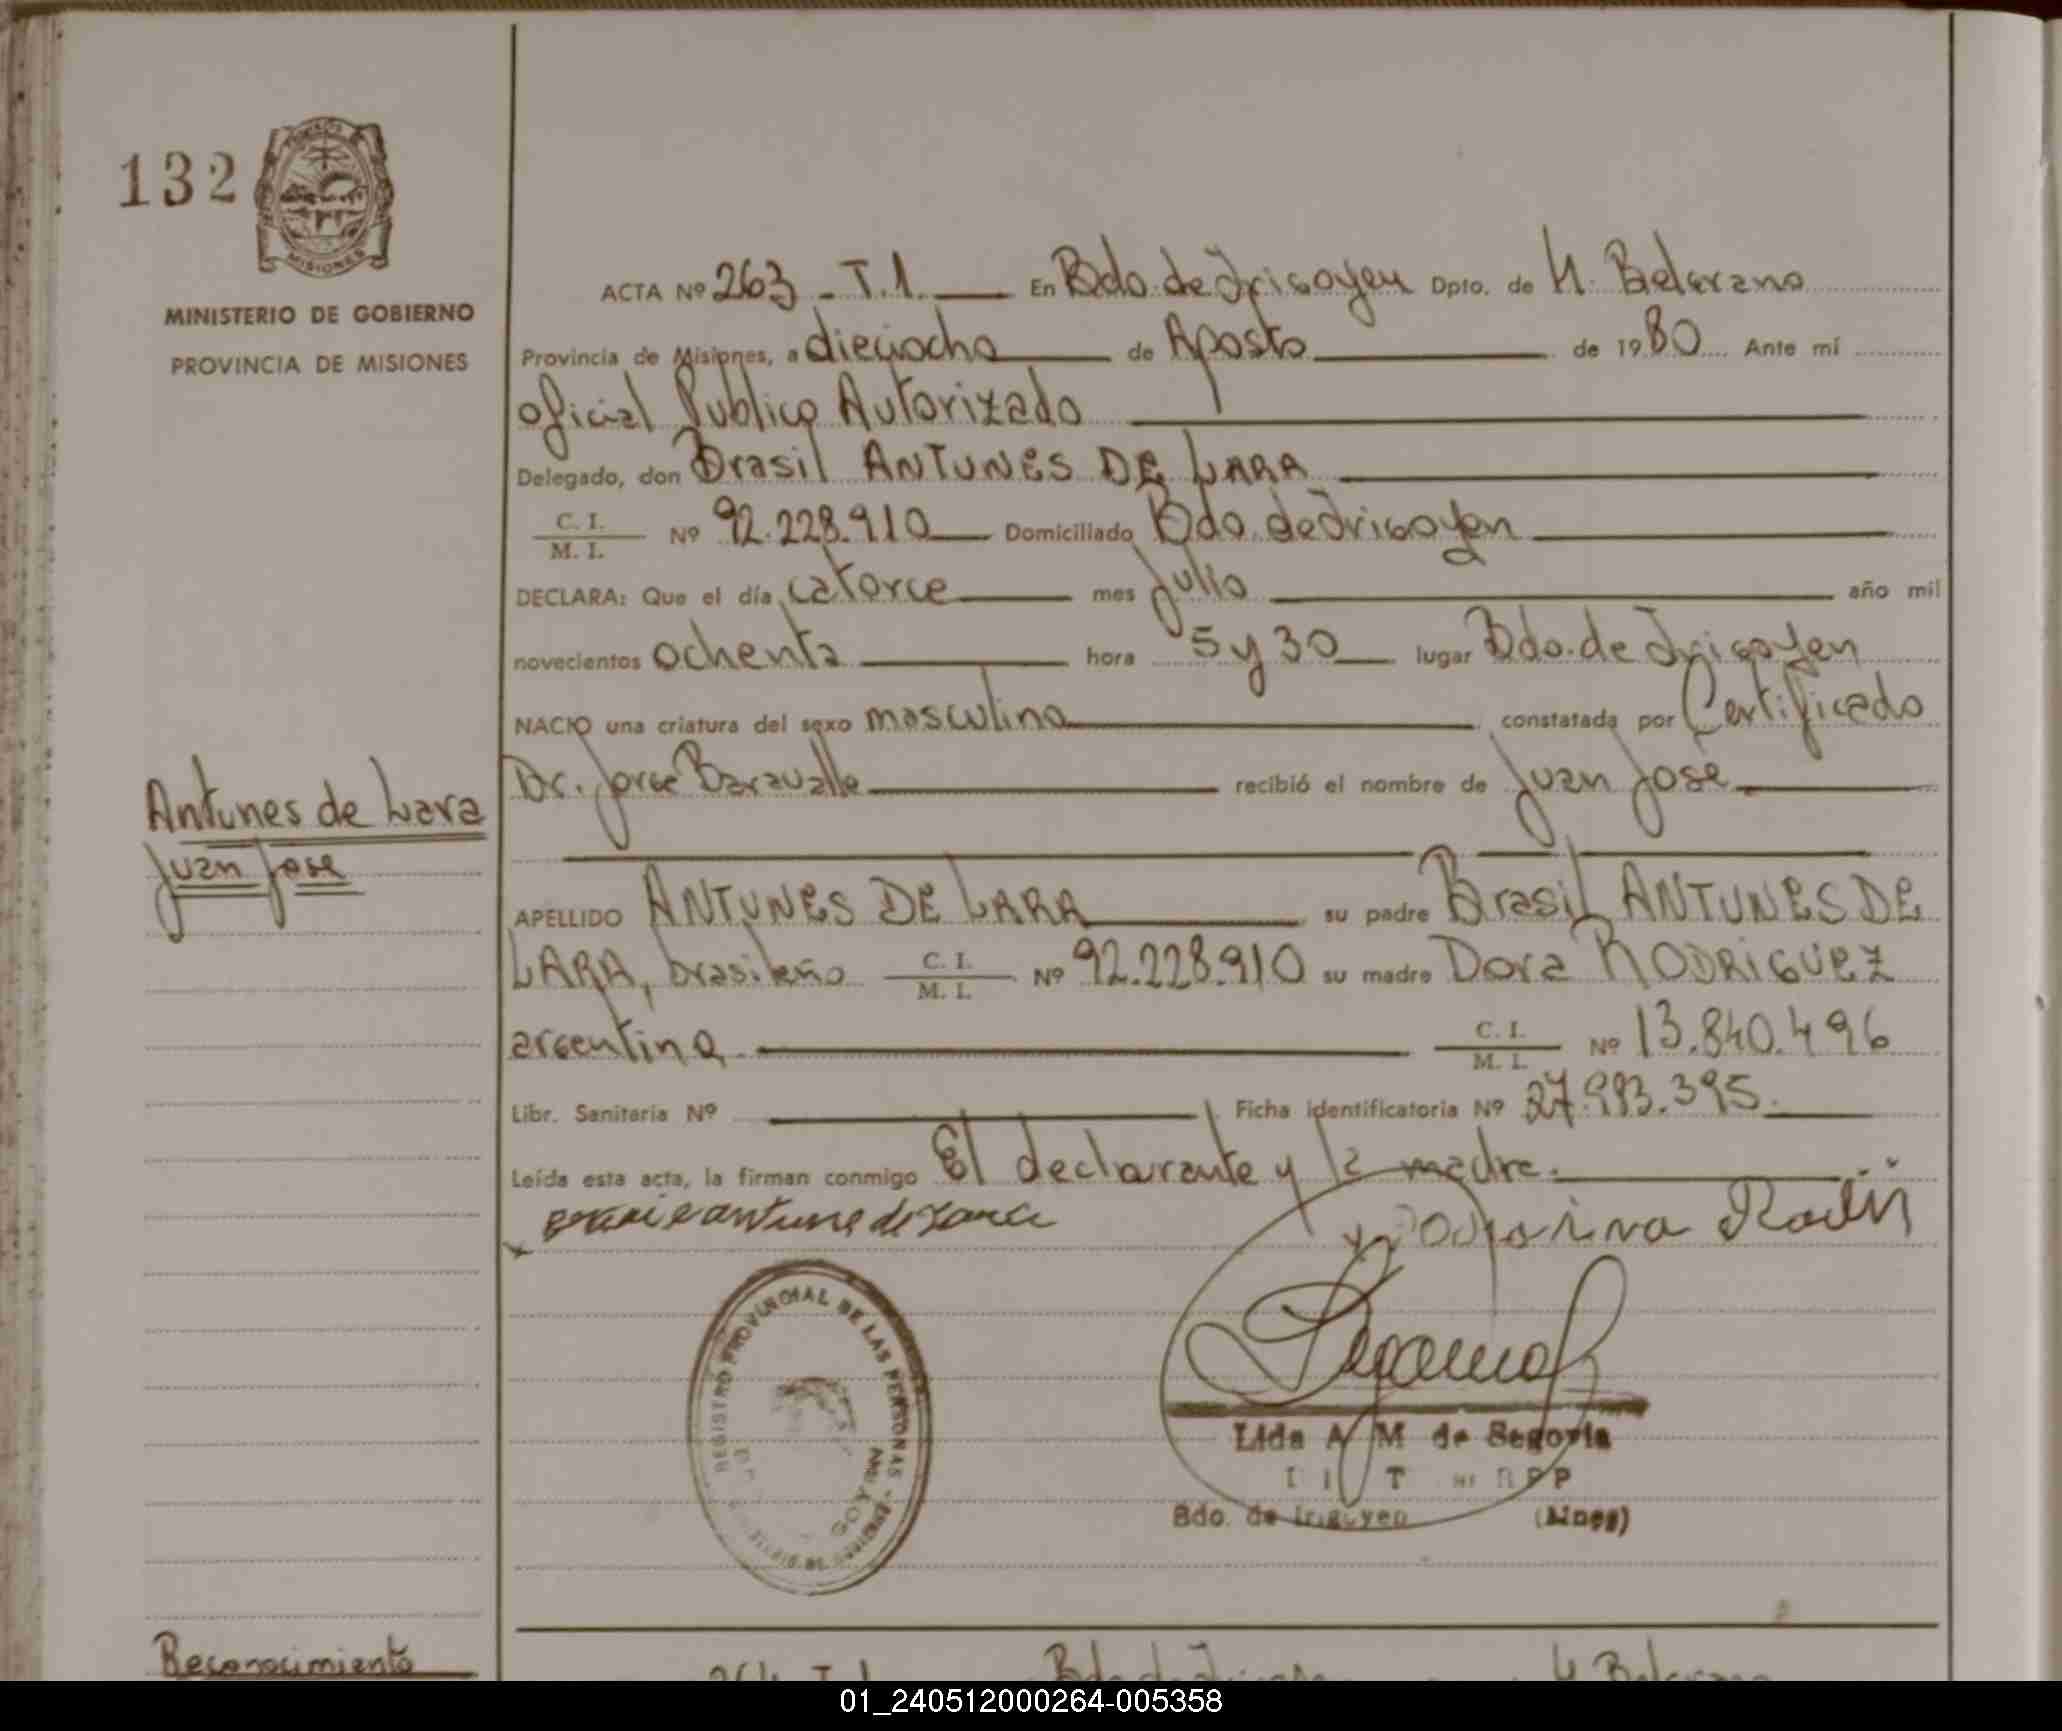 132
MISIONES
MINISTERIO DE GOBIERNO
PROVINCIA DE MISIONES
Antunes de Lara
Juan Jose
Reconocimiento
ACTA Nº 263 - T.1. En Bdo. de Irigoyen Dpto. de M. Belgrano
Provincia de Misiones, a dieciocho de Agosto de 1980 Ante mí
oficial Publico Autorizado
Delegado, don Brasil ANTUNES DE LARA
C. I. / M. I. Nº 92.228.910 Domiciliado Bdo. de Irigoyen
DECLARA: Que el día catorce mes Julio año mil
novecientos ochenta hora 5 y 30 lugar Bdo. de Irigoyen
NACIO una criatura del sexo masculino constatada por Certificado
Dr. Jorge Baravalle recibió el nombre de Juan José
APELLIDO ANTUNES DE LARA su padre Brasil ANTUNES DE
LARA, brasileño C. I. / M. I. Nº 92.228.910 su madre Dora RODRIGUEZ
argentina C. I. / M. I. Nº 13.840.496
Libr. Sanitaria Nº Ficha identificatoria Nº 27.993.395.
Leída esta acta, la firman conmigo El declarante y la madre.
antune de Lara
REGISTRO PROVINCIAL DE LAS PERSONAS
Lida A M de Segovia
Bdo. de Irigoyen (Mnes)
264 T.1 Bdo. de Irigoyen M. Belgrano
01_240512000264-005358